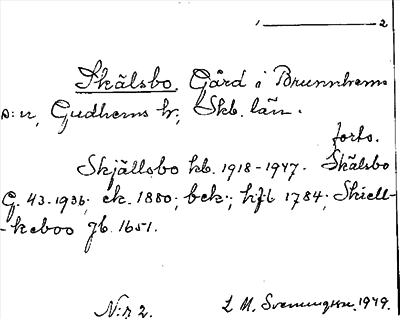 1 ——— 2
Skälsbo, Gård i Brunnhems
s:n, Gudhems hr; Skb. län.
forts.
Skjällsbo kb. 1918-1947. Skälsbo
G. 43. 1936; ek. 1880; bek; hfl 1784; Skiell-
-keboo jb. 1651.
N:r 2. L M. Svenungsson. 1949.